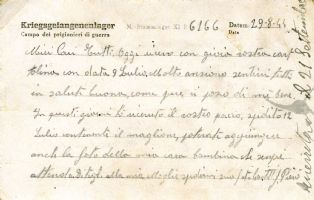 Kriegsgefangenenlager
Campo dei prigionieri di guerra
M.-Stammlager XI B 6166
Datum: 29-8-44
Data
Miei Cari Tutti. Oggi ricevo con gioia vostra car
tolina con data 9 Luglio. Molto ansioso sentirvi tutti
in salute buona, come pure vi posso di me bene
In questi giorni ò ricevuto il vostro pacco, spedito 12
Luglio contenente il maglione, potevate aggiungere
anch la foto della mia cara bambina che sempre
attendo. Ditegli alla mia Moglie spedirmi una foto
21 Settembre